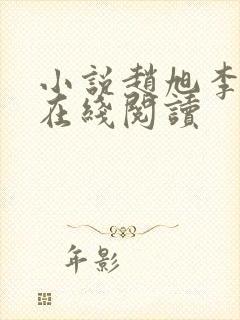 小説趙旭李
在綫閱讀
年影